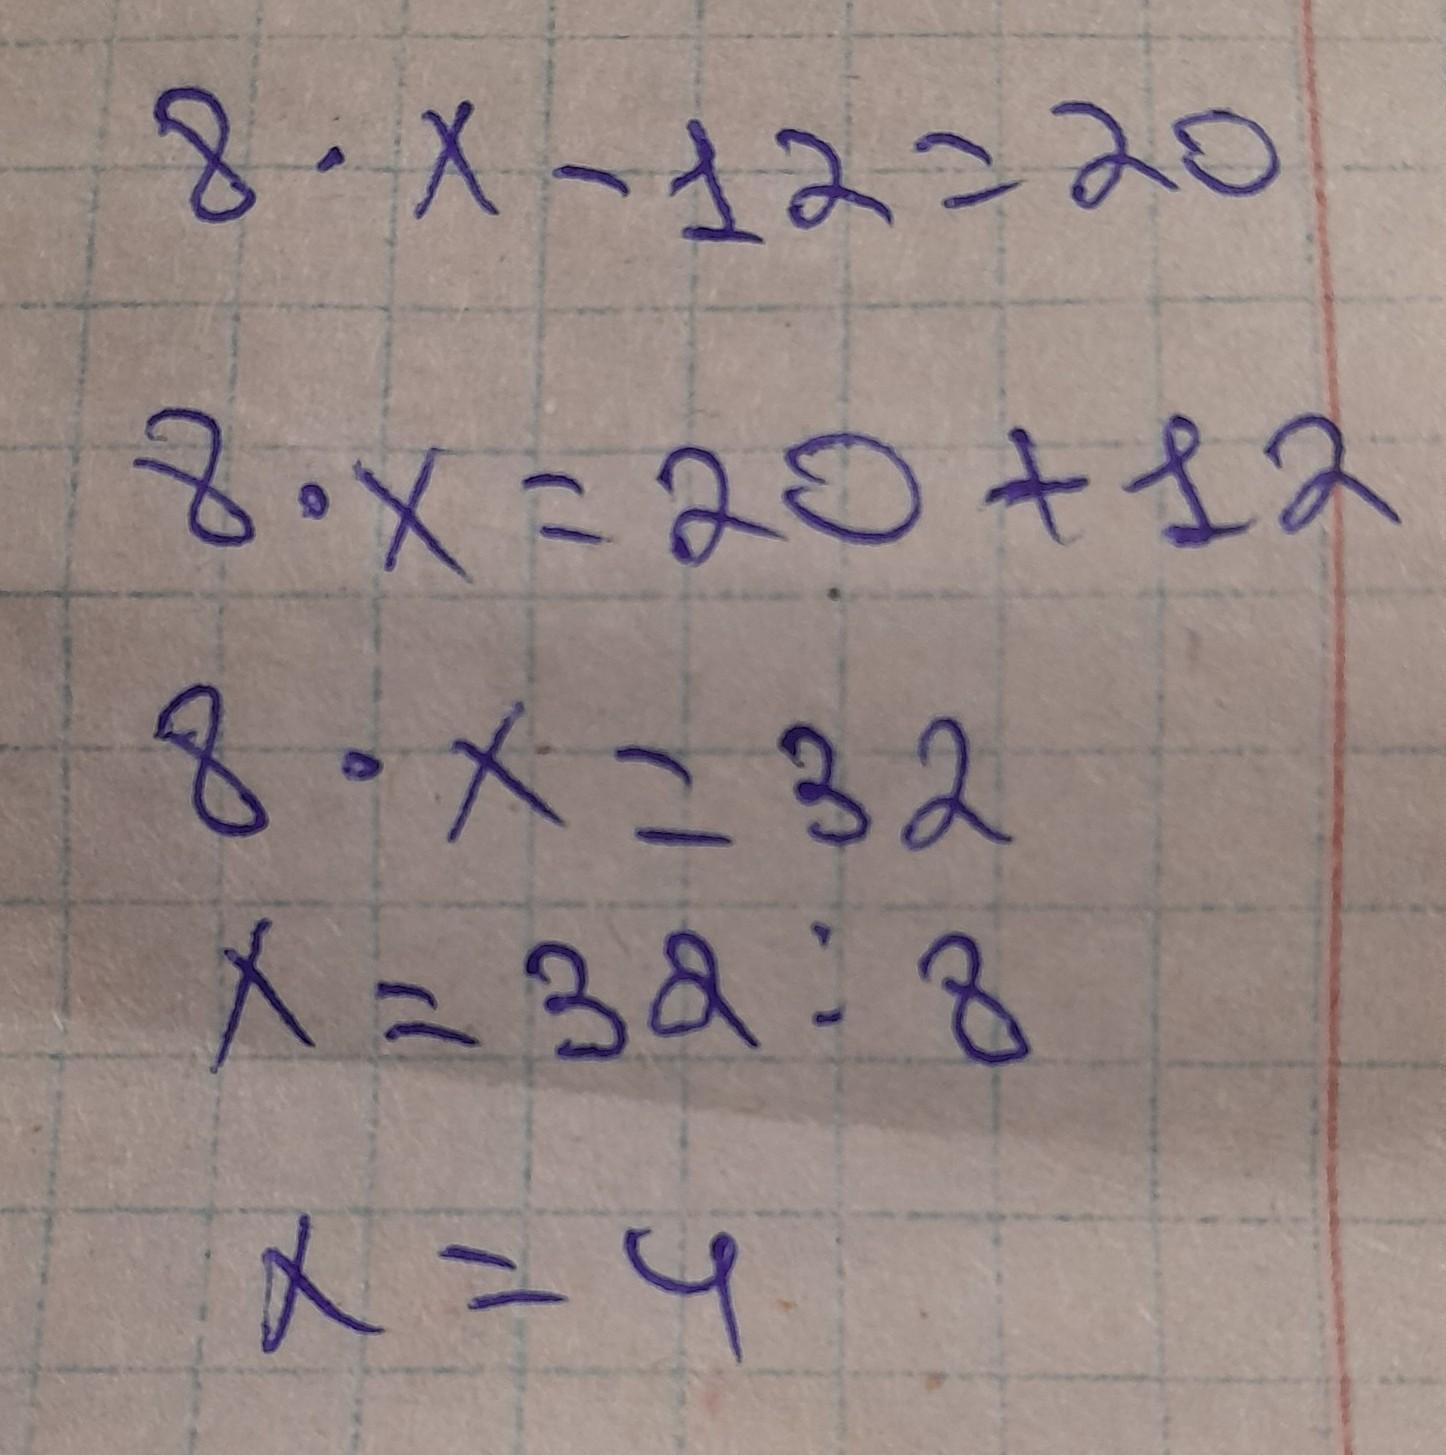 8 · x - 12 = 20
8 · x = 20 + 12
8 · x = 32
x = 32 : 8
x = 4